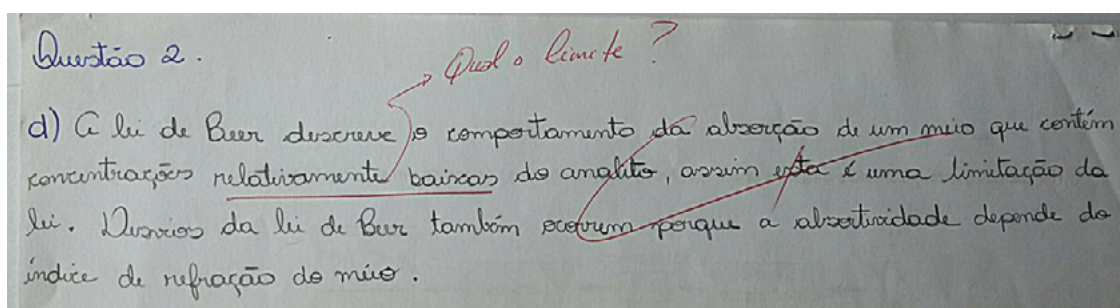 Questão 2.
Qual o limite?
d) A lei de Beer descreve o comportamento da absorção de um meio que contém
concentrações relativamente baixas do analito, assim esta é uma limitação da
lei. Desvios da lei de Beer também ocorrem porque a absortividade depende do
índice de refração do meio.